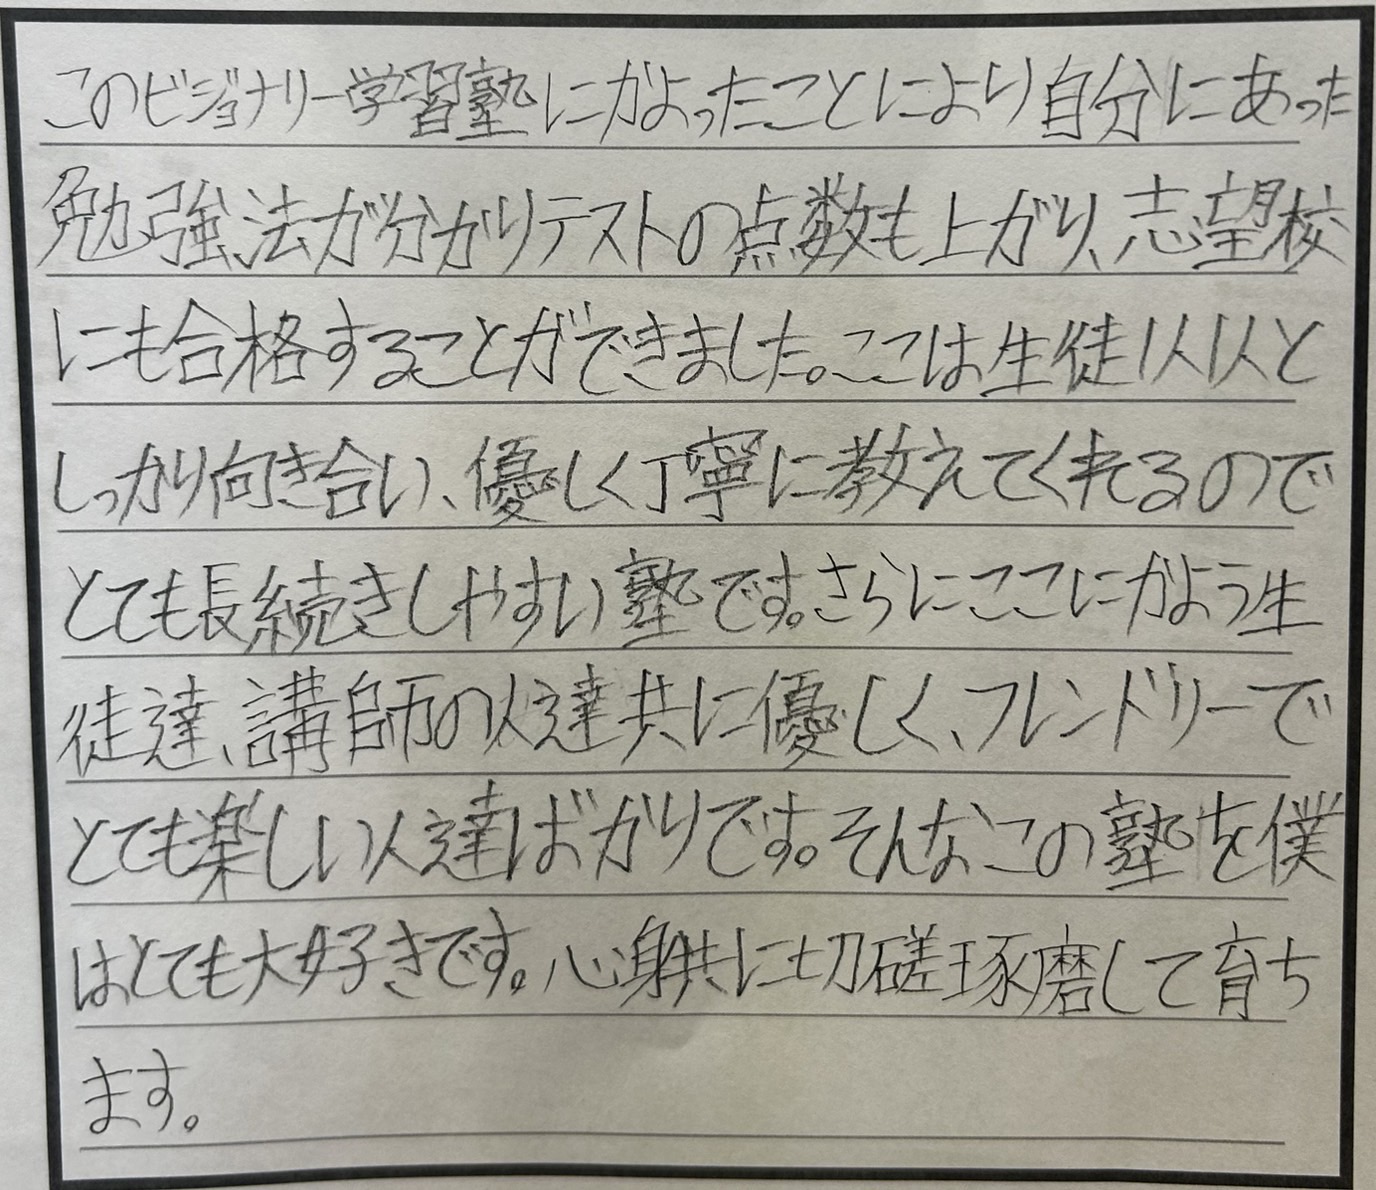 このビジョナリー学習塾にかよったことにより自分にあった
勉強法が分かりテストの点数も上がり、志望校
にも合格することができました。ここは生徒1人1人と
しっかり向き合い、優しく丁寧に教えてくれるので
とても長続きしやすい塾です。さらにここにかよう生
徒達、講師の人達共に優しく、フレンドリーで
とても楽しい人達ばかりです。そんなこの塾を僕
はとても大好きです。心身共に切磋琢磨して育ち
ます。